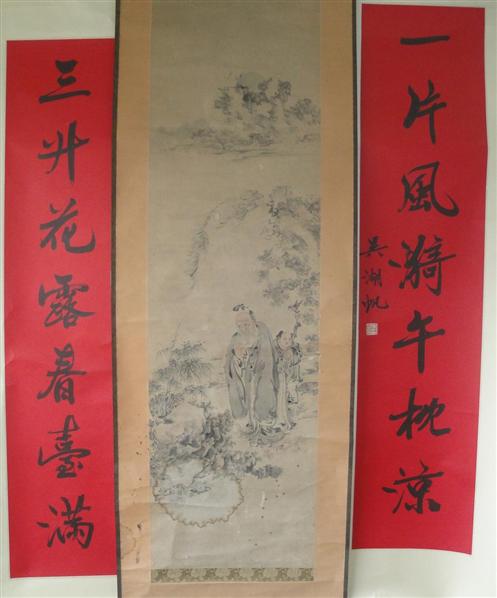 一片風漪午枕涼
吳湖帆
三升花露春臺滿